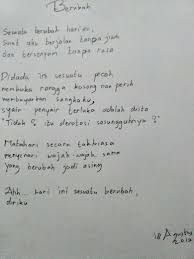 Berubah
Semula berubah hari ini,
Saat aku berjalan tanpa jiwa
dan bersenyum tanpa rasa
Didada ini sesuatu pecah
membuka rongga kosong nan perih
membuyarkan sangkaku,
syair penyair terluka adalah dusta
"Tidak & itu derotasi sesungguhnya &"
Matahari secara takbiasa
menyinari wajah-wajah sama
yang berubah jadi asing
Ahh... hari ini sesuatu berubah,
diriku
18 Agustus
2010